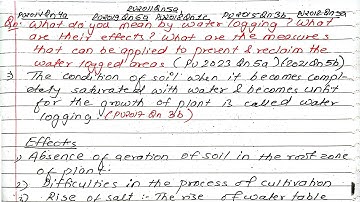 PU2021Qn5a
PU2024Qn4a PU2019Qn5a PU2018Qn1c PU2023Qn3b
Qn: What do you mean by water logging? What
are their effects? What are the measures
that can be applied to prevent & reclaim the
water logged areas (PU2023 Qn5a)(2021Qn5b)
The condition of soil when it becomes compl-
etely saturated with water & becomes unfit
for the growth of plant is called water
logging. (PU2017 Qn 3b)
Effects
1) Absence of aeration of soil in the root zone
of plant.
2) Difficulties in the process of cultivation
3) Rise of salt :- The rise of water table